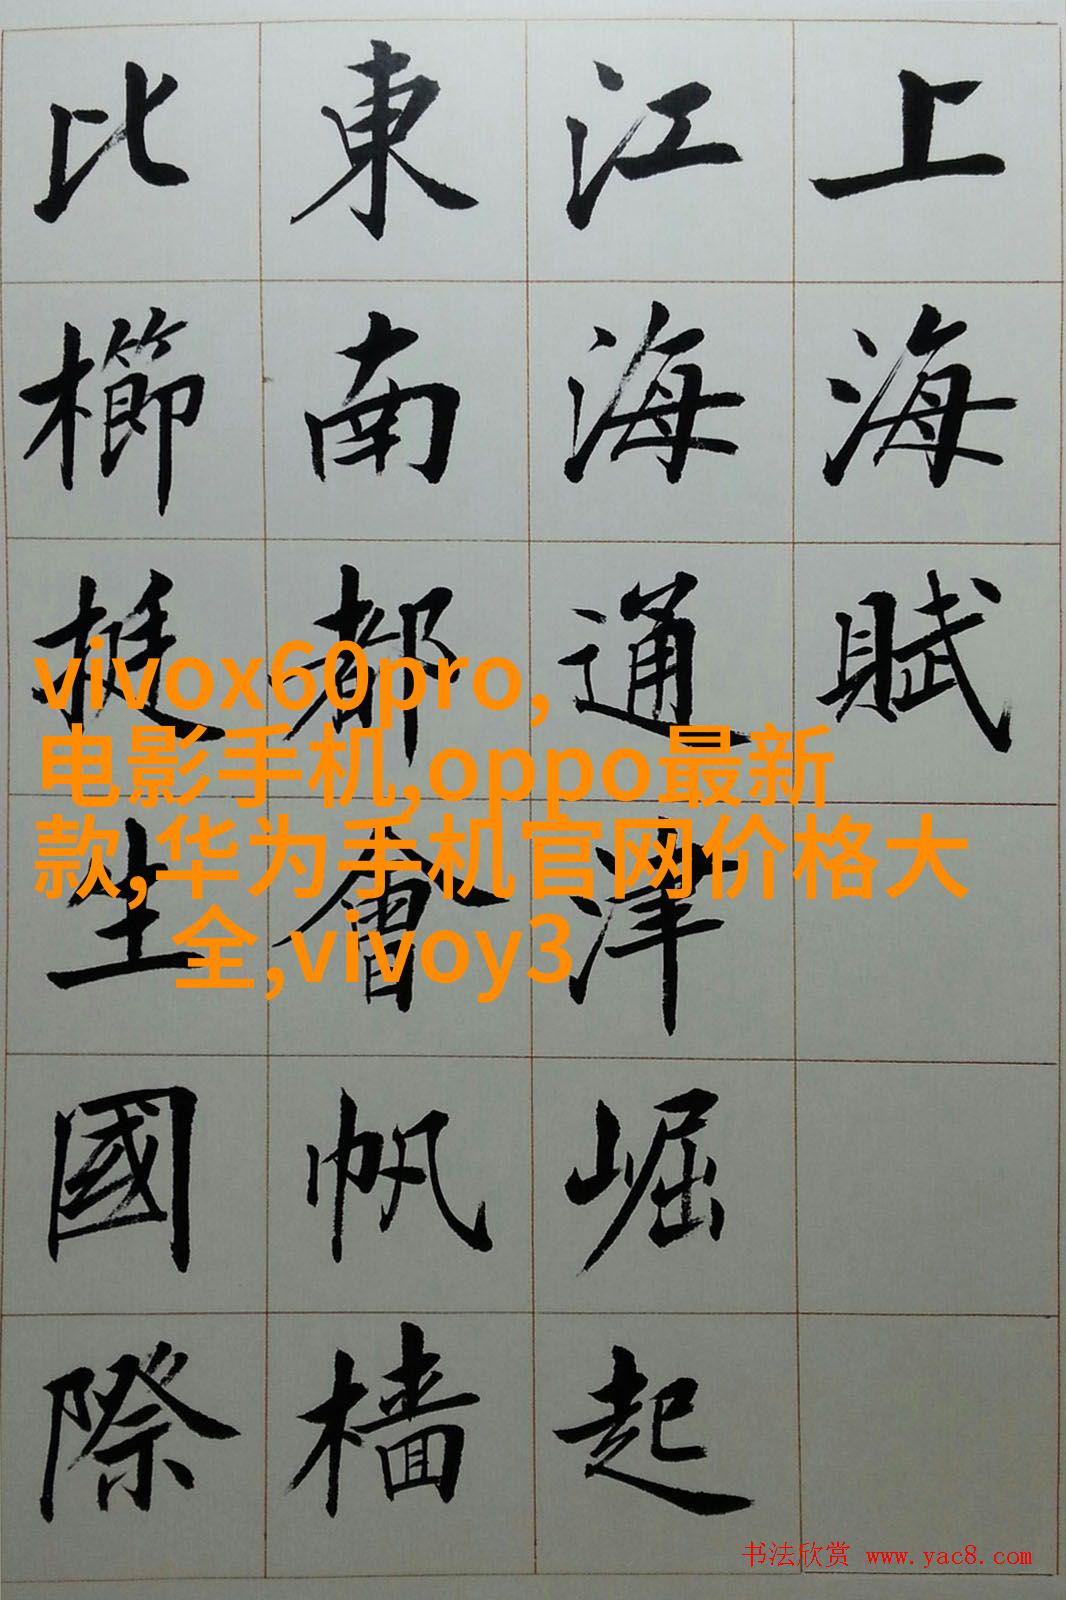 上海賦
江海通津崛起
東南都會帆檣
比櫛挺生國際
vivox60pro,
电影手机,oppo最新
款,华为手机官网价格大
全,vivoy3
书法欣赏 www.yac8.com